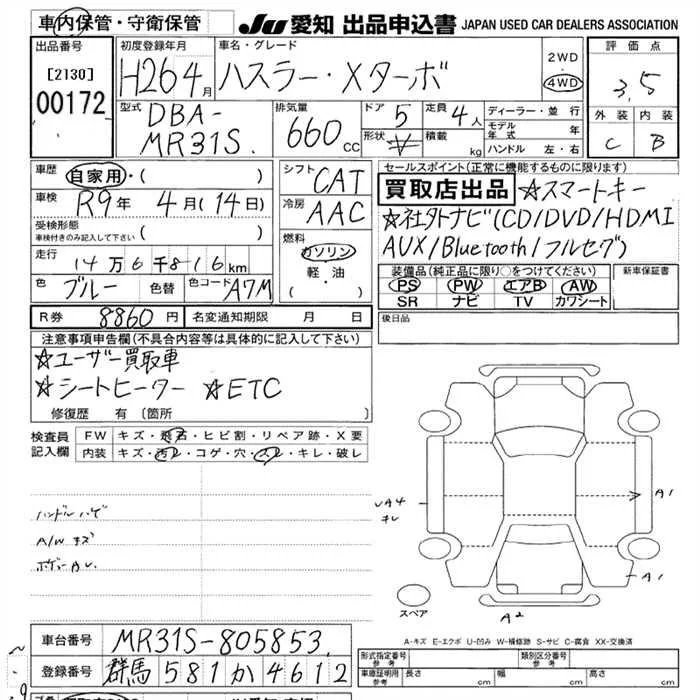 車内保管・守衛保管
JU 愛知 出品申込書 JAPAN USED CAR DEALERS ASSOCIATION
出品番号 [2130] 00172
初度登録年月 H26 4月
車名・グレード ハスラー・Xターボ
2WD
4WD
評価点 3.5
外装 C 内装 B
型式 DBA-MR31S.
排気量 660cc
ドア 5
形状
定員 4人
積載 kg
ディーラー・並行
モデル年式 年
ハンドル 左・右
車歴 自家用・( )
車検 R9年 4月(14日)
受検形態
車検付きのみ記入して下さい ( )
走行 14万6千816km
色 ブルー 色替 色コード A7M
シフト CAT
冷房 AAC
燃料 ガソリン
軽・油
・( )
R券 8860円 名変通知期限 月 日
セールスポイント(正常に機能するものに限ります)
買取店出品 ☆スマートキー
☆社外ナビ(CD/DVD/HDMI
AUX/Bluetooth/フルセグ)
装備品(純正品に限り○をつけてください)
PS PW エアB AW
SR ナビ TV カワシート
新車保証書
後日品
注意事項申告欄(不具合内容等は具体的に記入して下さい)
☆ユーザー買取車
☆シートヒーター ☆ETC
修復歴 有 (箇所
検査員記入欄
FW キズ・飛石・ヒビ割・リペア跡・X要
内装 キズ・汚レ・コゲ・穴・スレ・キレ・破レ
ハンドルハゲ
A/W キズ
キレ
A1
A1
A2
スペア
A-キズ E-エクボ U-凹み W-補修跡 S-サビ C-腐食 XX-交換済
車台番号 MR31S-805853
登録番号 群馬 581 か 4612
形式指定番号 参考
類別区分番号 参考
車庫証明用 参考 長さ cm 幅 cm 高さ cm